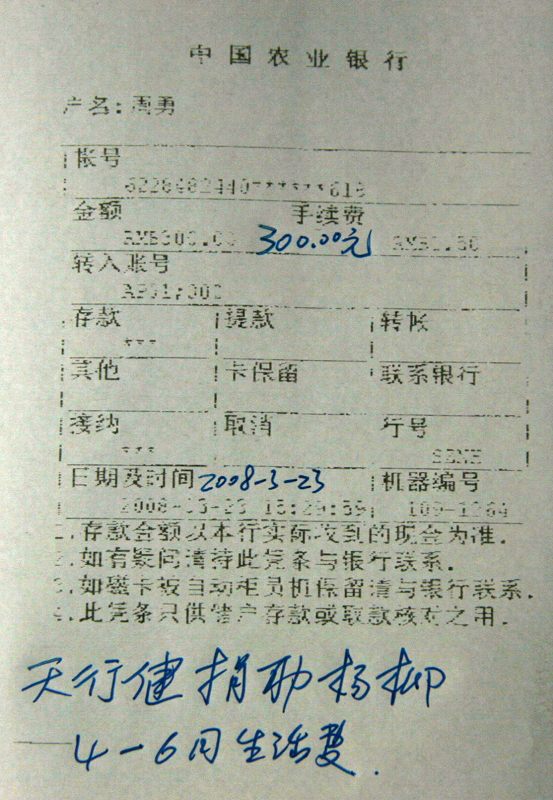 中国农业银行
户名：周勇
帐号
6228482440******618
金额 手续费
RMB300.00 300.00元
转入账号
存款 提款 转帐
***
其他 卡保留 联系银行
接纳 取消 行号
***
日期及时间 2008-3-23 机器编号
1.存款金额以本行实际收到的现金为准.
2.如有疑问请持此凭条与银行联系.
3.如磁卡被自动柜员机保留请与银行联系.
4.此凭条只供储户存款或取款核对之用.
天行健捐助杨柳
4-6月生活费.